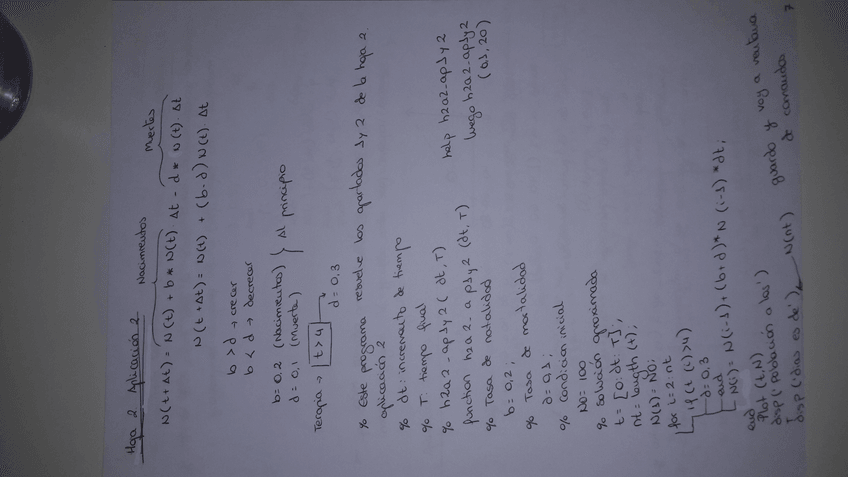 Hoja 2 Aplicación 2
Nacimientos Muertes
N(t+Δt) = N(t) + b * N(t) · Δt - d * N(t) · Δt
N(t+Δt) = N(t) + (b-d) N(t) · Δt
b > d → crecer
b < d → decrecer
b = 0,2 (Nacimientos)
d = 0,1 (Muerte) } Al principio
Terapia → t > 4 → d = 0,3
% Este programa resuelve los apartados 1 y 2 de la hoja 2.
aplicación 2
% dt: incremento de tiempo
% T: tiempo final
% h2a2-ap1y2 (dt, T) help h2a2-ap1y2
function h2a2-ap1y2 (dt, T) luego h2a2-ap1y2
(0.1, 20)
% Tasa de natalidad
b = 0,2;
% Tasa de mortalidad
d = 0,1;
% Condición inicial
N0 = 100
% Solución aproximada
t = [0:dt:T];
nt = length (t);
N(1) = N0;
for i=2:nt
if (t (i) > 4)
d = 0,3
end
N(i) = N(i-1) + (b+d) * N(i-1) * dt;
end
Plot (t,N)
disp ('población a los')
T
disp ('días es de') N(nt)
guardo y voy a ventana
de comandos
7